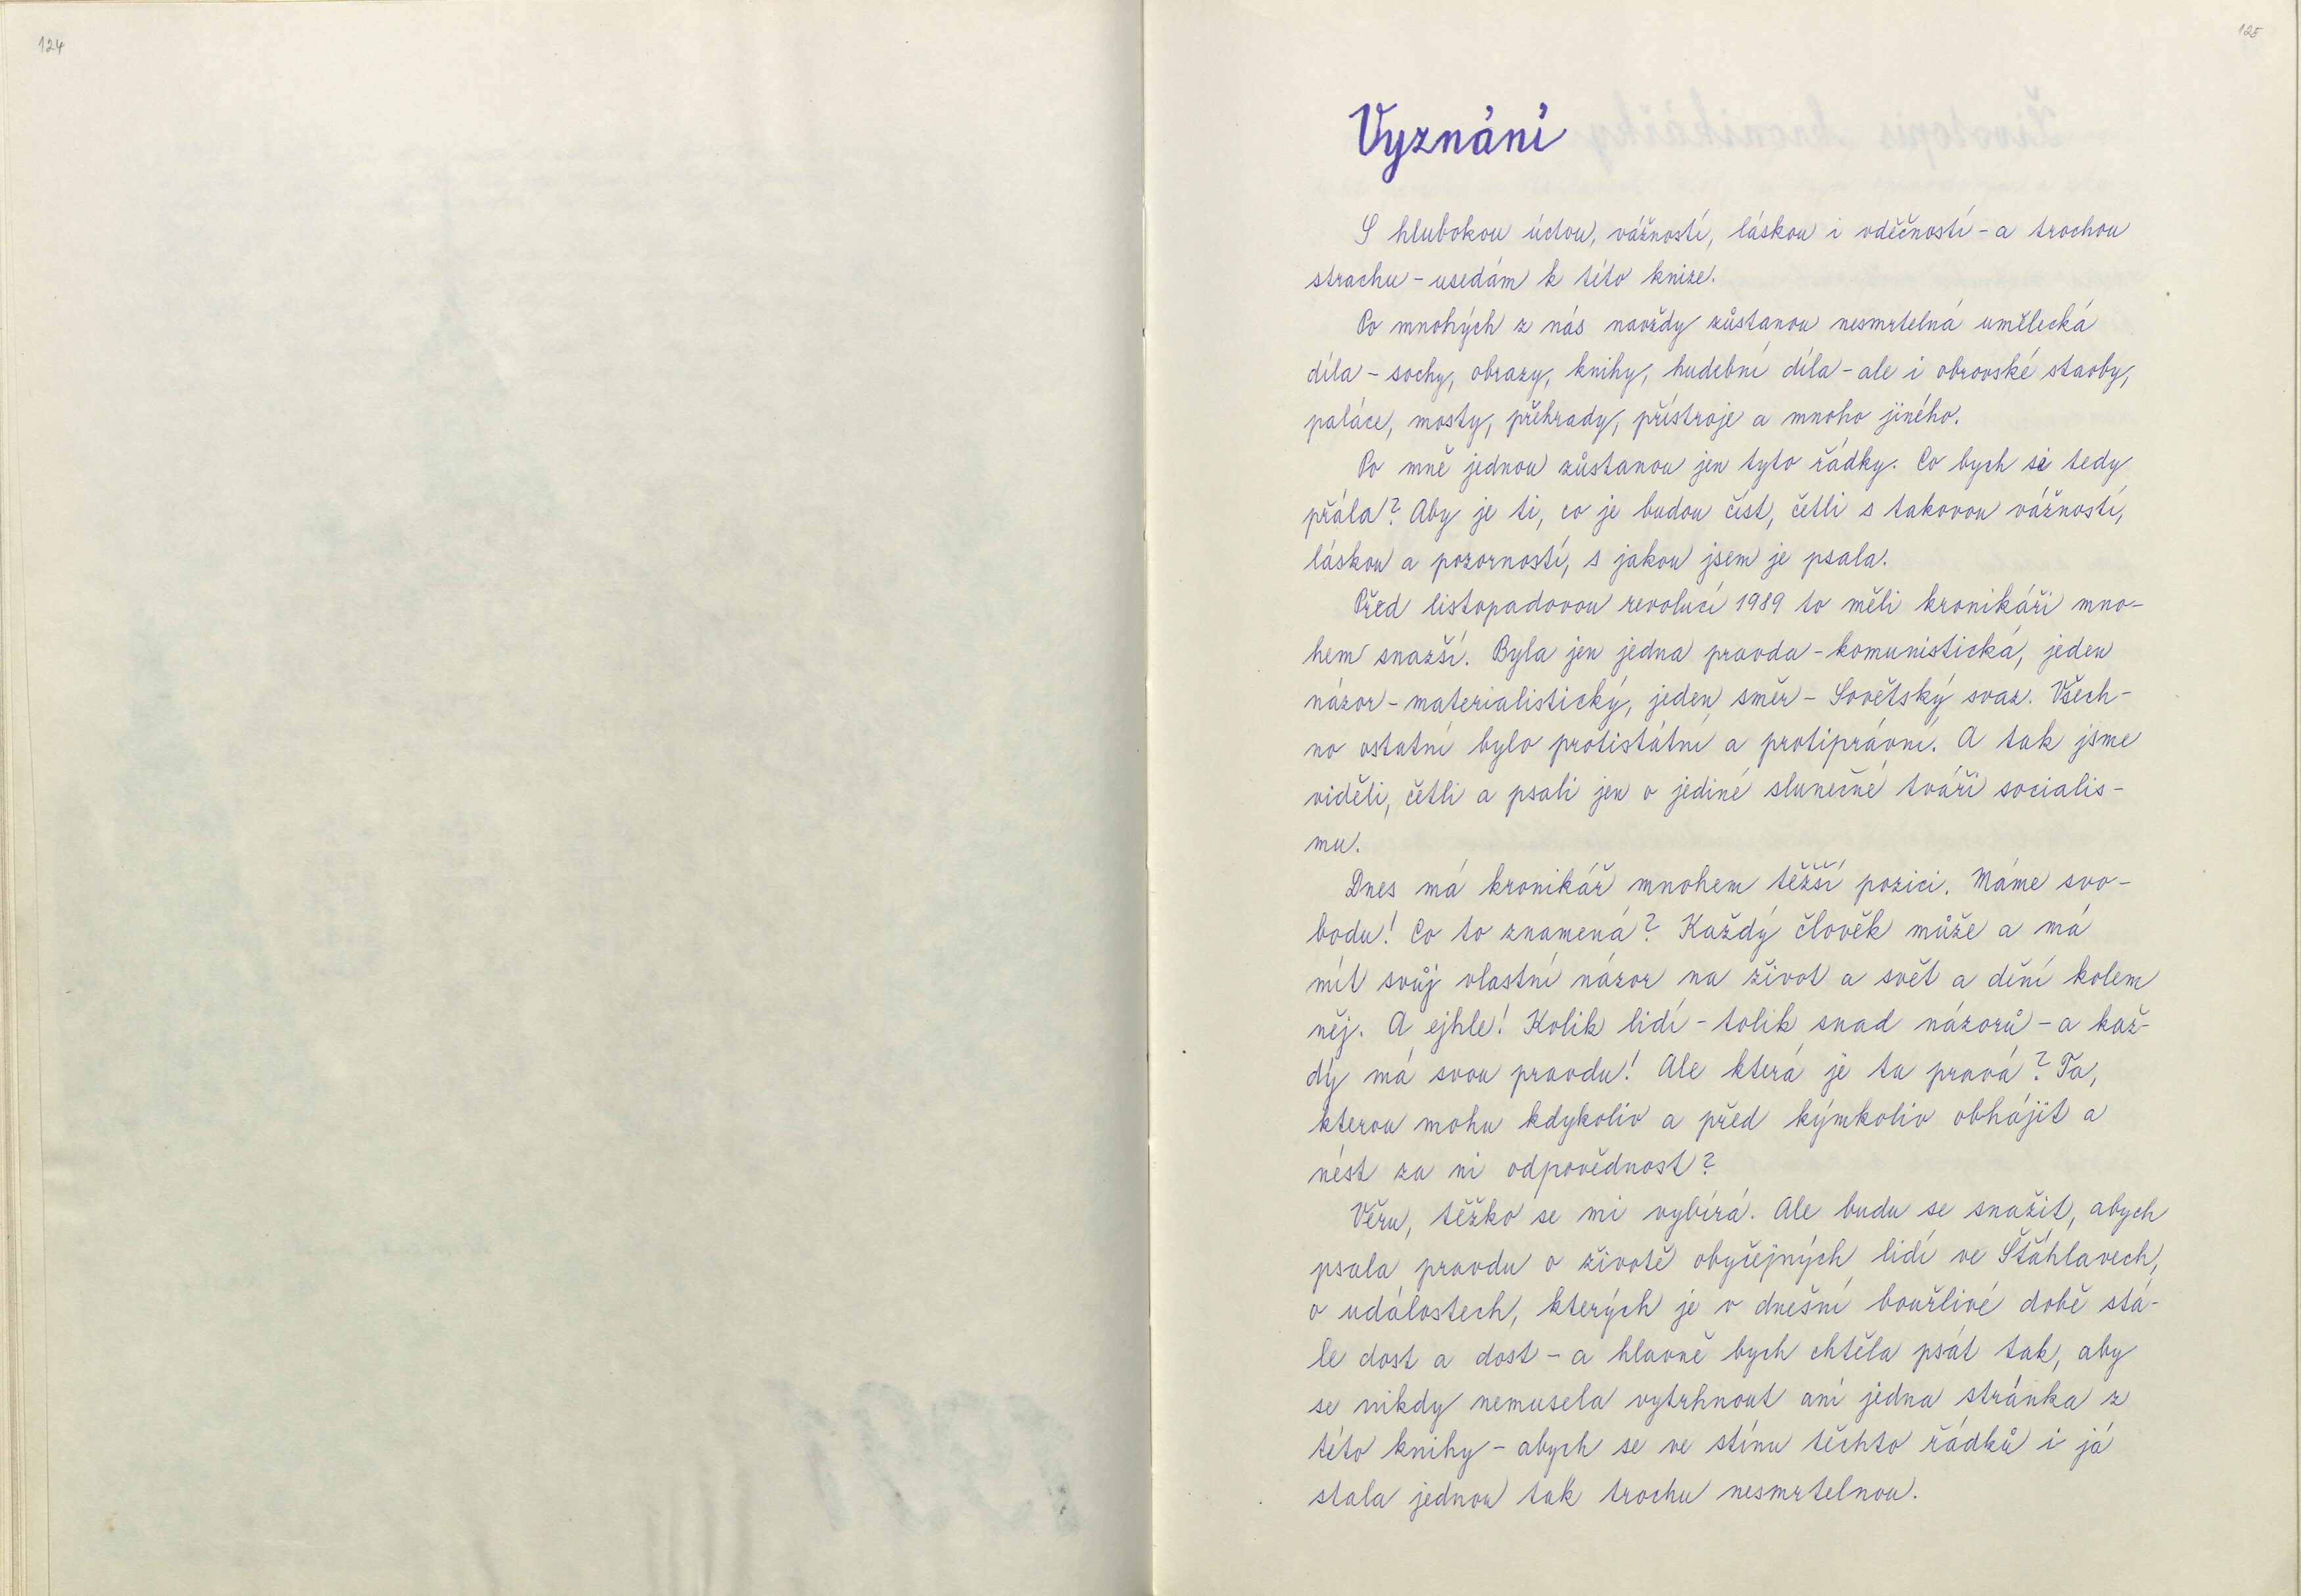 124
125
Vyznání
S hlubokou úctou, vážností, láskou i vděčností - a trochou
strachu - usedám k této knize.
Po mnohých z nás navždy zůstanou nesmrtelná umělecká
díla - sochy, obrazy, knihy, hudební díla - ale i obrovské stavby,
paláce, mosty, přehrady, přístroje a mnoho jiného.
Po mně jednou zůstanou jen tyto řádky. Co bych si tedy
přála? Aby je ti, co je budou číst, četli s takovou vážností,
láskou a pozorností, s jakou jsem je psala.
Před listopadovou revolucí 1989 to měli kronikáři mno-
hem snazší. Byla jen jedna pravda - komunistická, jeden
názor - materialistický, jeden směr - Sovětský svaz. Všech-
no ostatní bylo protistátní a protiprávní. A tak jsme
viděli, četli a psali jen o jediné slunečné tváři socialis-
mu.
Dnes má kronikář mnohem těžší pozici. Máme svo-
bodu! Co to znamená? Každý člověk může a má
mít svůj vlastní názor na život a svět a dění kolem
něj. A ejhle! Kolik lidí - tolik snad názorů - a kaž-
dý má svou pravdu! Ale která je ta pravá? Ta,
kterou mohu kdykoliv a před kýmkoliv obhájit a
nést za ni odpovědnost?
Věru, těžko se mi vybírá. Ale budu se snažit, abych
psala pravdu o životě obyčejných lidí ve Šťáhlavech,
o událostech, kterých je v dnešní bouřlivé době stá-
le dost a dost - a hlavně bych chtěla psát tak, aby
se nikdy nemusela vytrhnout ani jedna stránka z
této knihy - abych se ve stínu těchto řádků i já
stala jednou tak trochu nesmrtelnou.